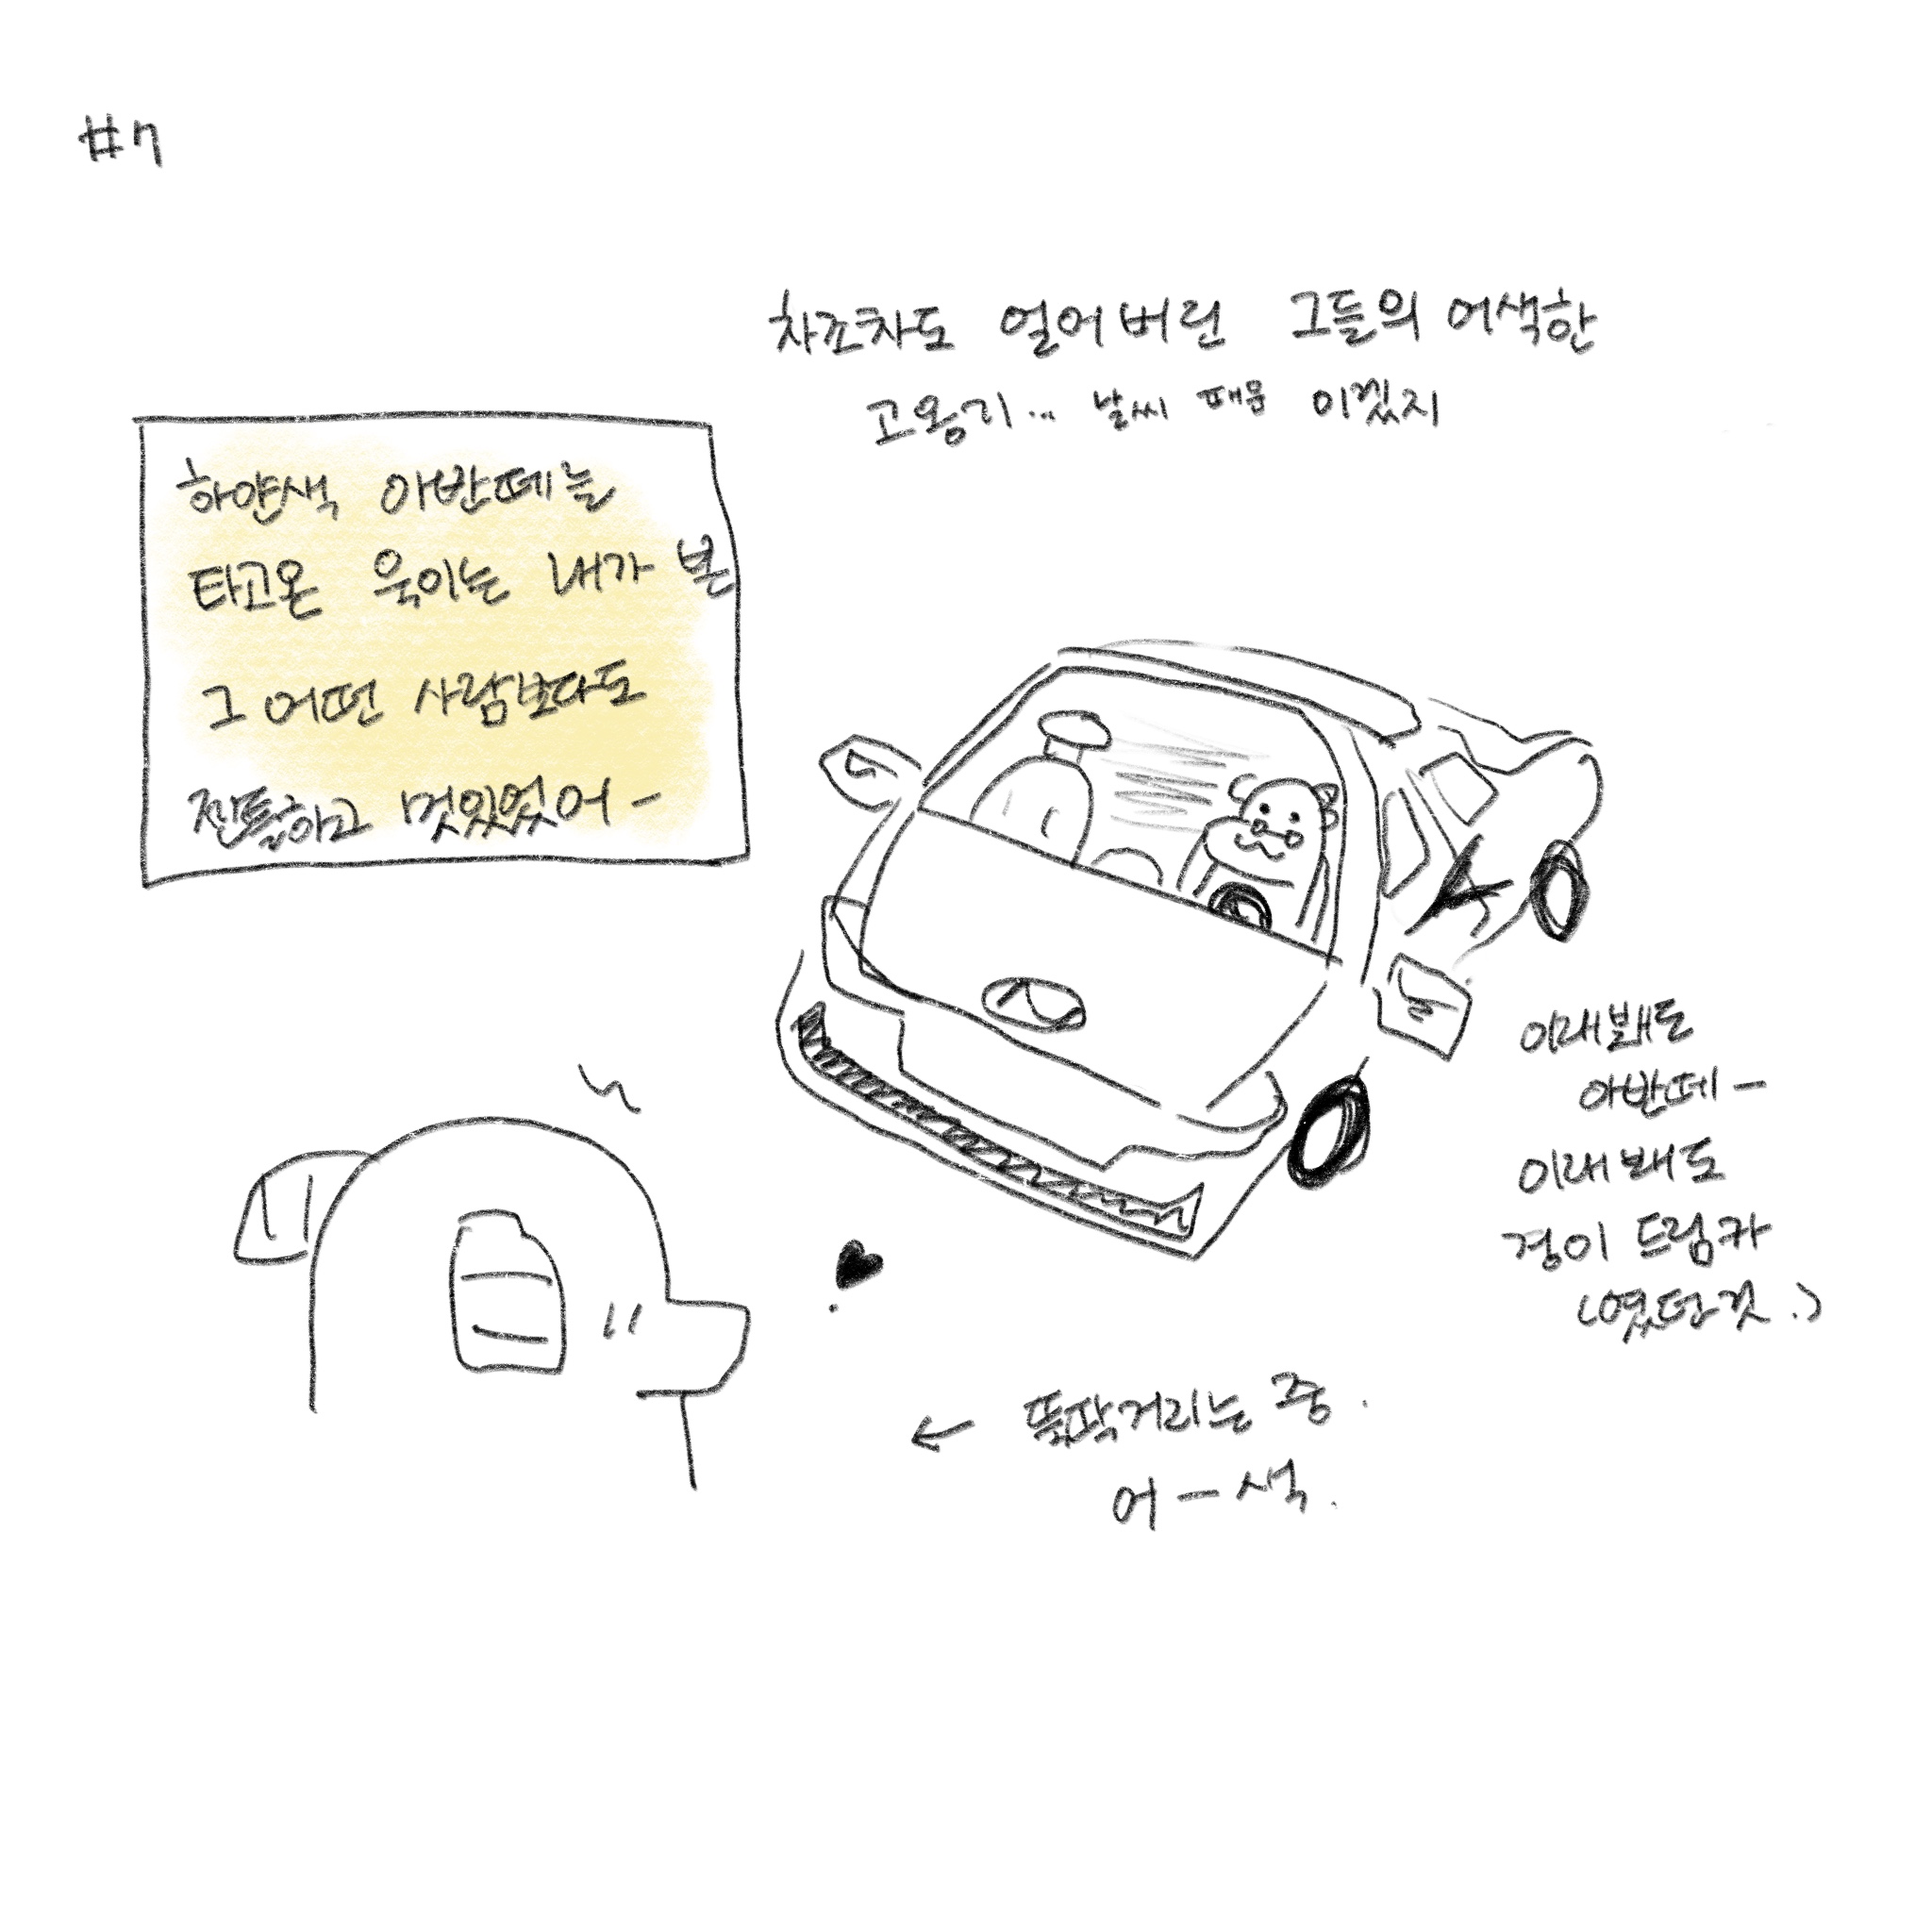 #7
차죠차도 얼어버린 그들의 어색한
공기... 날씨 때문 이겠지
하얀색 아반떼를
타고온 욱이는 내가 본
그 어떤 사람보다도
찐득하고 멋있었어-
이래봬도
아반떼-
이래봬도
경이 드림카
(였던것.)
← 뚝딱거리는 중.
어-색.